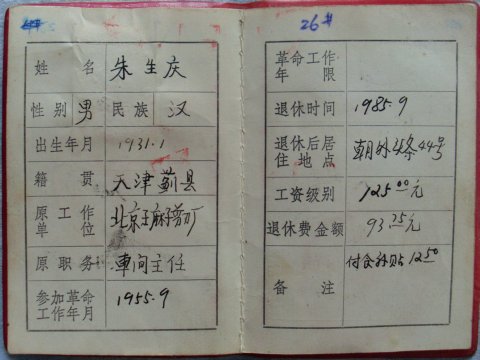 姓名 朱生庆
性别 男 民族 汉
出生年月 1931.1
籍贯 天津蓟县
原工作单位 北京王麻子剪刀厂
原职务 车间主任
参加革命工作年月 1955.9
26#
革命工作年限
退休时间 1985.9
退休后居住地点 朝外头条44号
工资级别 125.00元
退休费金额 93.25元
备注 付食补贴12.50